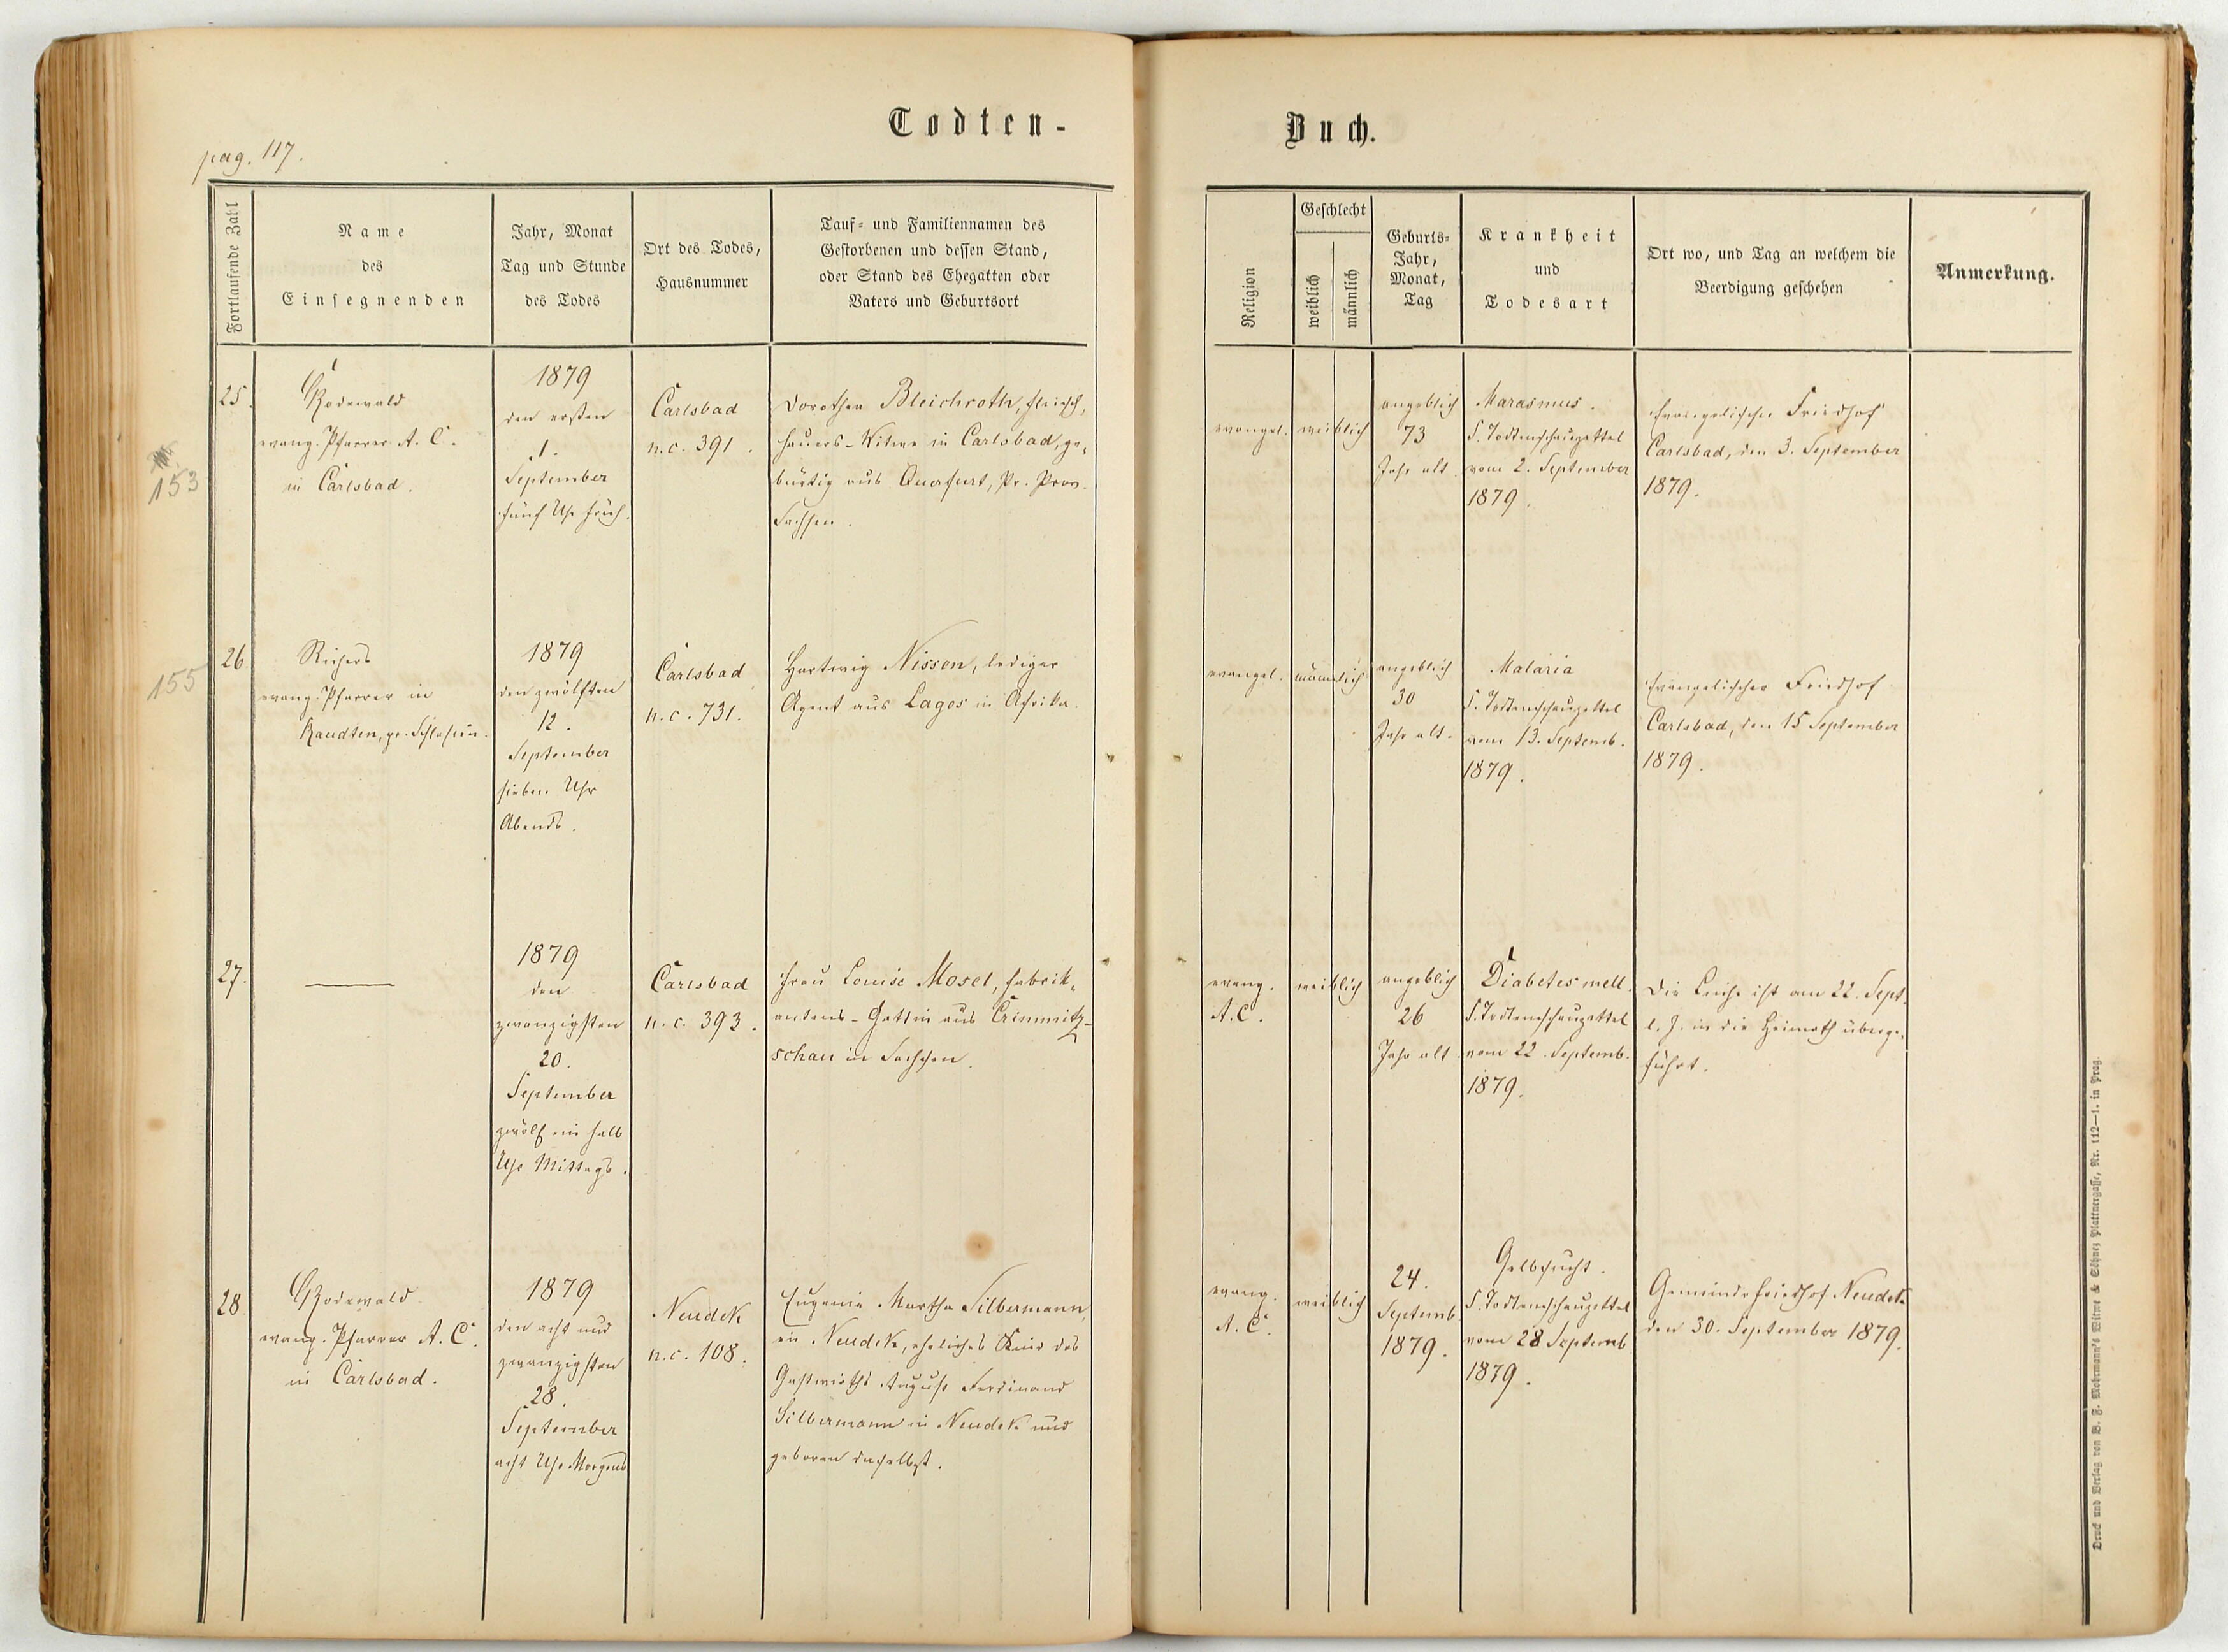 Todten-
Buch.
pag. 117.
Fortlaufende Zahl
Name
des
Einsegnenden
Jahr, Monat
Tag und Stunde
des Todes
Ort des Todes,
Hausnummer
Tauf- und Familiennamen des
Gestorbenen und dessen Stand,
oder Stand des Ehegatten oder
Vaters und Geburtsort
Religion
Geschlecht
weiblich
männlich
Geburts-
Jahr,
Monat,
Tag
Krankheit
und
Todesart
Ort wo, und Tag an welchem die
Beerdigung geschehen
Anmerkung.
153
25.
Rodewald
evang. Pfarrer A. C.
in Carlsbad.
1879
den ersten
1.
September
fünf Uhr früh.
Carlsbad
n.c. 391.
Dorothea Bleichroth, Fleisch-
hauers-Witwe in Carlsbad, ge-
bürtig aus Querfurt, Pr. Prov.
Sachsen.
evangel.
weiblich
angeblich
73
Jahr alt.
Marasmus.
S. Todtenschauzettel
vom 2. September
1879.
Evangelischer Friedhof
Carlsbad, den 3. September
1879.
155
26.
evang. Pfarrer in
Raudten, pr. Schlesien.
1879
den zwölften
12.
September
sieben Uhr
Abends.
Carlsbad
n.c. 731.
Hartwig Nissen, lediger
Agent aus Lagos in Afrika.
evangel.
männlich
angeblich
30
Jahr alt.
Malaria
S. Todtenschauzettel
vom 13. Septemb.
1879.
Evangelischer Friedhof
Carlsbad, den 15 September
1879.
27.
1879
den
zwanzigsten
20.
September
zwölf ein halb
Uhr Mittags.
Carlsbad
n.c. 393.
Frau Louise Mosel, Fabrik-
antens-Gattin aus Crimmitz-
schau in Sachsen.
evang.
A.C.
weiblich
angeblich
26
Jahr alt.
Diabetes mell.
S. Todtenschauzettel
vom 22. Septemb.
1879.
Die Leiche ist am 22. Sept.
l. J. in die Heimath überge-
führt.
28
Rodewald
evang. Pfarrer A. C.
in Carlsbad.
1879
den acht und
zwanzigsten
28.
September
acht Uhr Morgens
Neudek
n.c. 108.
Eugenie Martha Silbermann,
in Neudek, eheliches Kind des
Gastwirths August Ferdinand
Silbermann in Neudek und
geboren daselbst.
evang.
A.C.
weiblich
24.
Septemb.
1879.
Gelbsucht.
S. Todtenschauzettel
vom 28 Septemb
1879.
Gemeindefriedhof Neudek
den 30. September 1879.
Druck und Verlag von B. F. Mohrmann's Witwe & Söhne; Plattnergasse, Nr. 112—1. in Prag.